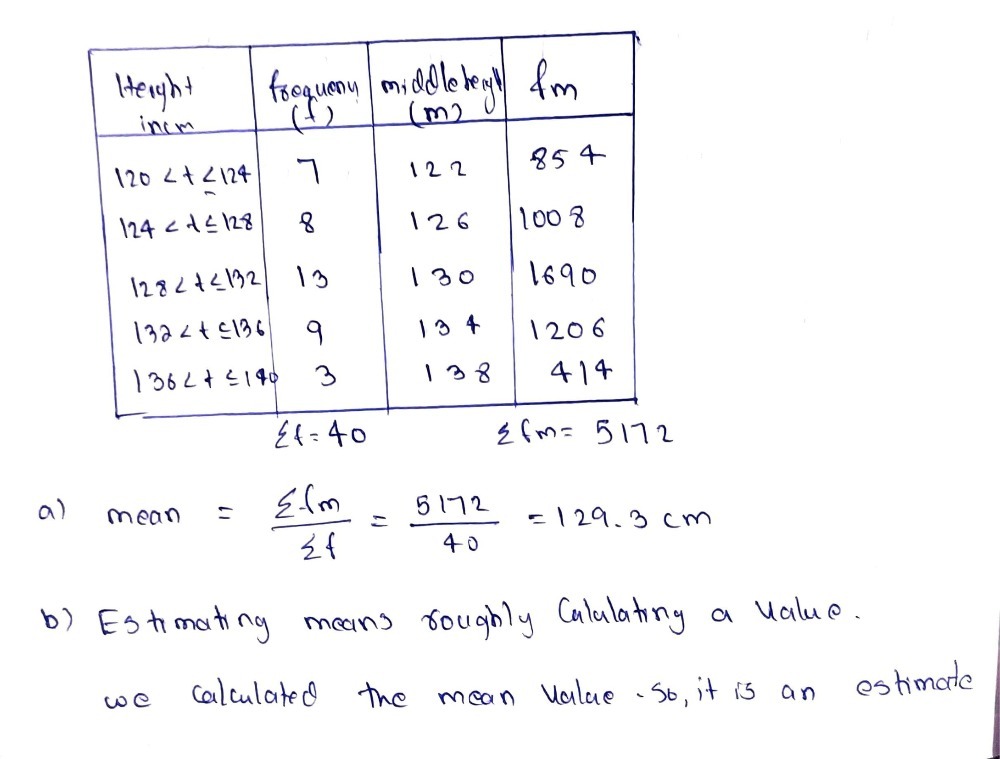 Height frequency middle height fm
in cm (f) (m)
120 < t ≤ 124 7 122 854
124 < t ≤ 128 8 126 1008
128 < t ≤ 132 13 130 1690
132 < t ≤ 136 9 134 1206
136 < t ≤ 140 3 138 414
Σf = 40 Σfm = 5172
a) mean = Σfm/Σf = 5172/40 = 129.3 cm
b) Estimating means roughly Calulating a value.
we calculated the mean value . So, it is an estimate